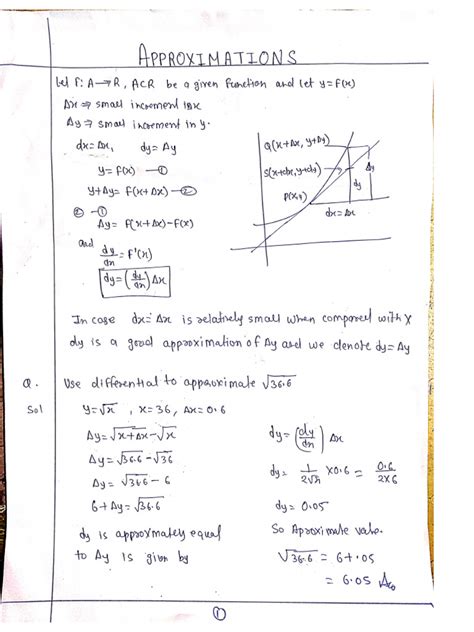 APPROXIMATIONS
Let f: A→R, ACR be a given function and let y=f(x)
Δx ⇒ small increment in x
Δy ⇒ small increment in y.
dx=Δx, dy=Δy
y=f(x) —①
y+Δy= f(x+Δx) —②
②-①
Δy= f(x+Δx)-f(x)
and
dy/dx = f'(x)
dy=(dy/dx)Δx
Q(x+Δx, y+Δy)
S(x+dx,y+dy)
P(x,y)
Δy
dy
dx=Δx
In case dx=Δx is relatively small when compared with x
dy is a good approximation of Δy and we denote dy=Δy
Q. Use differential to approximate √36.6
Sol y=√x, x=36, Δx=0.6
Δy=√x+Δx-√x
Δy=√36.6-√36
Δy=√36.6-6
6+Δy=√36.6
dy is approxmately equal
to Δy is given by
dy=(dy/dx)Δx
dy= 1/2√x ×0.6 = 0.6/2×6
dy=0.05
So Aproximate value.
√36.6 = 6+.05
= 6.05
①